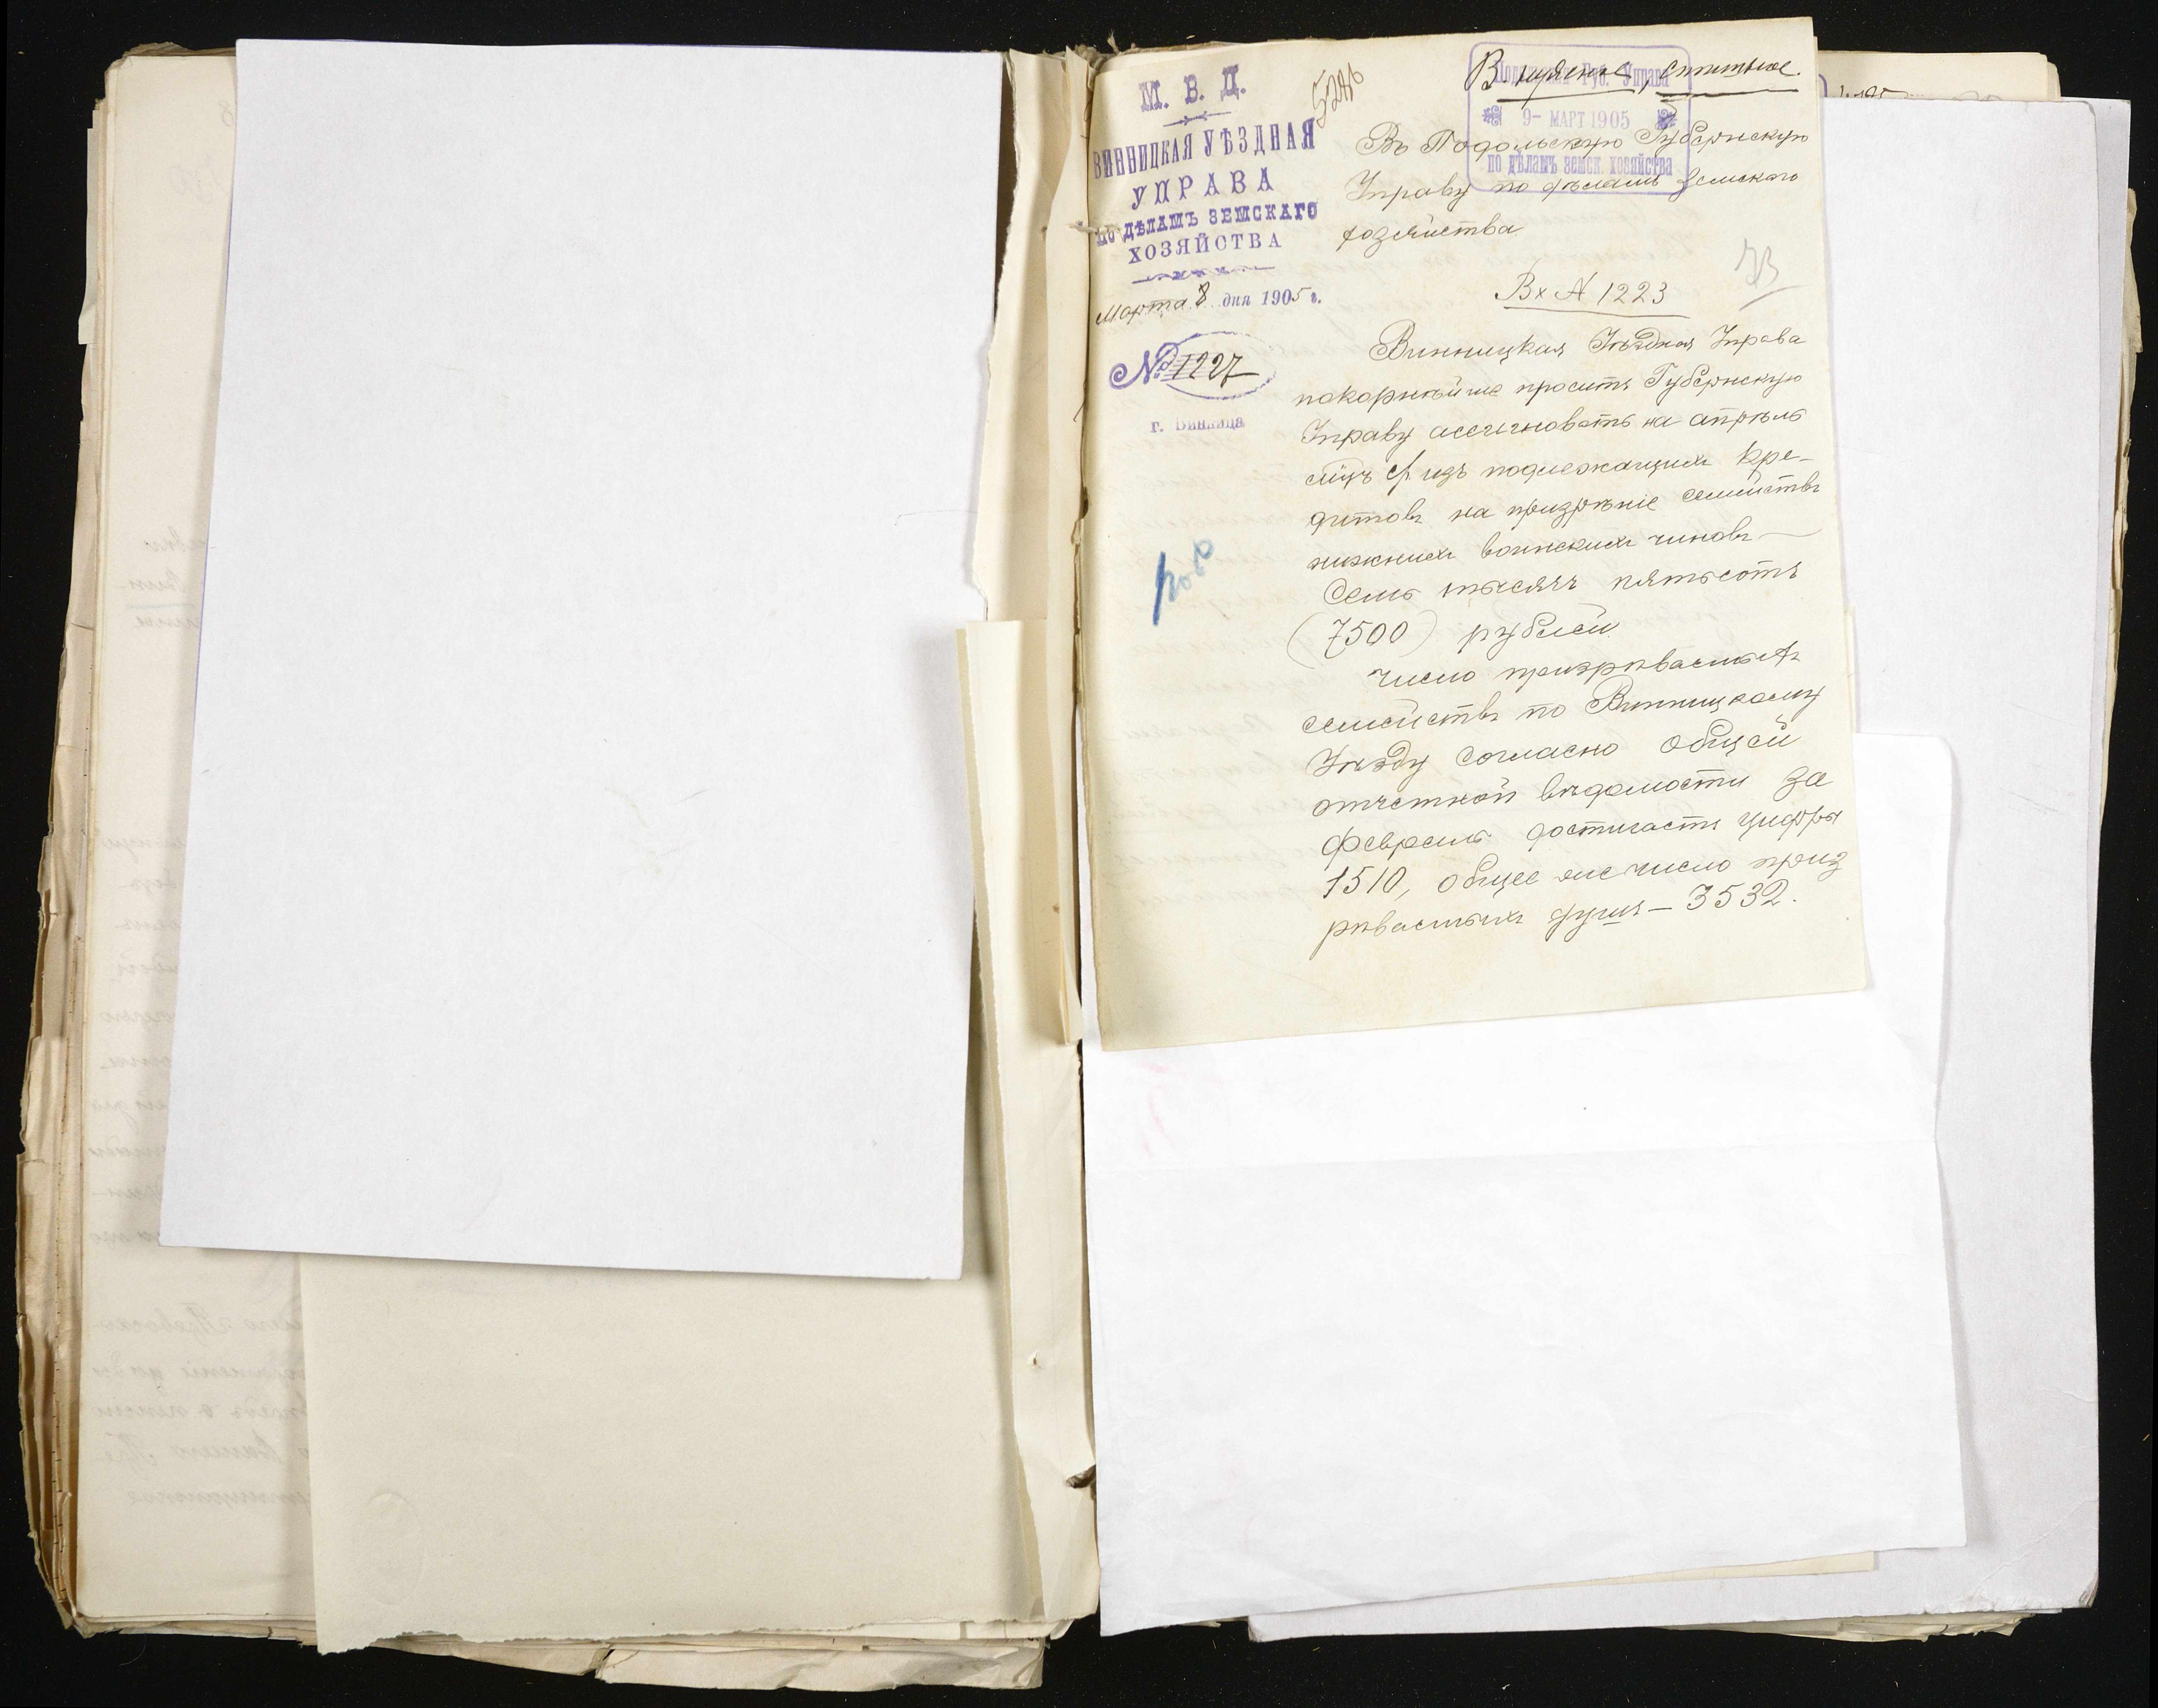 М. В. Д.
ВИННИЦКАЯ УѢЗДНАЯ
УПРАВА
ПО ДѢЛАМЪ ЗЕМСКАГО
ХОЗЯЙСТВА
Марта 8 дня 1905 г.
№ 1227
г. Винница
Подольская Губ. Управа
9- МАРТ 1905
по дѣламъ земск. хозяйства
Въ Подольскую Губернскую
Управу по дѣламъ земскаго
хозяйства
Вх № 1223
Винницкая Уѣздная Управа
покорнѣйше проситъ Губернскую
Управу ассигновать на апрѣль
мцъ с/г изъ подлежащихъ кре-
дитовъ на призрѣніе семействъ
нижнихъ воинскихъ чиновъ —
Семь тысячъ пятьсотъ
(7500) рублей
Число призрѣваемыхъ
семействъ по Винницкому
Уѣзду согласно общей
отчетной вѣдомости за
Февраль достигаетъ цифры
1510, общее же число приз
рѣваемыхъ душъ — 3532.